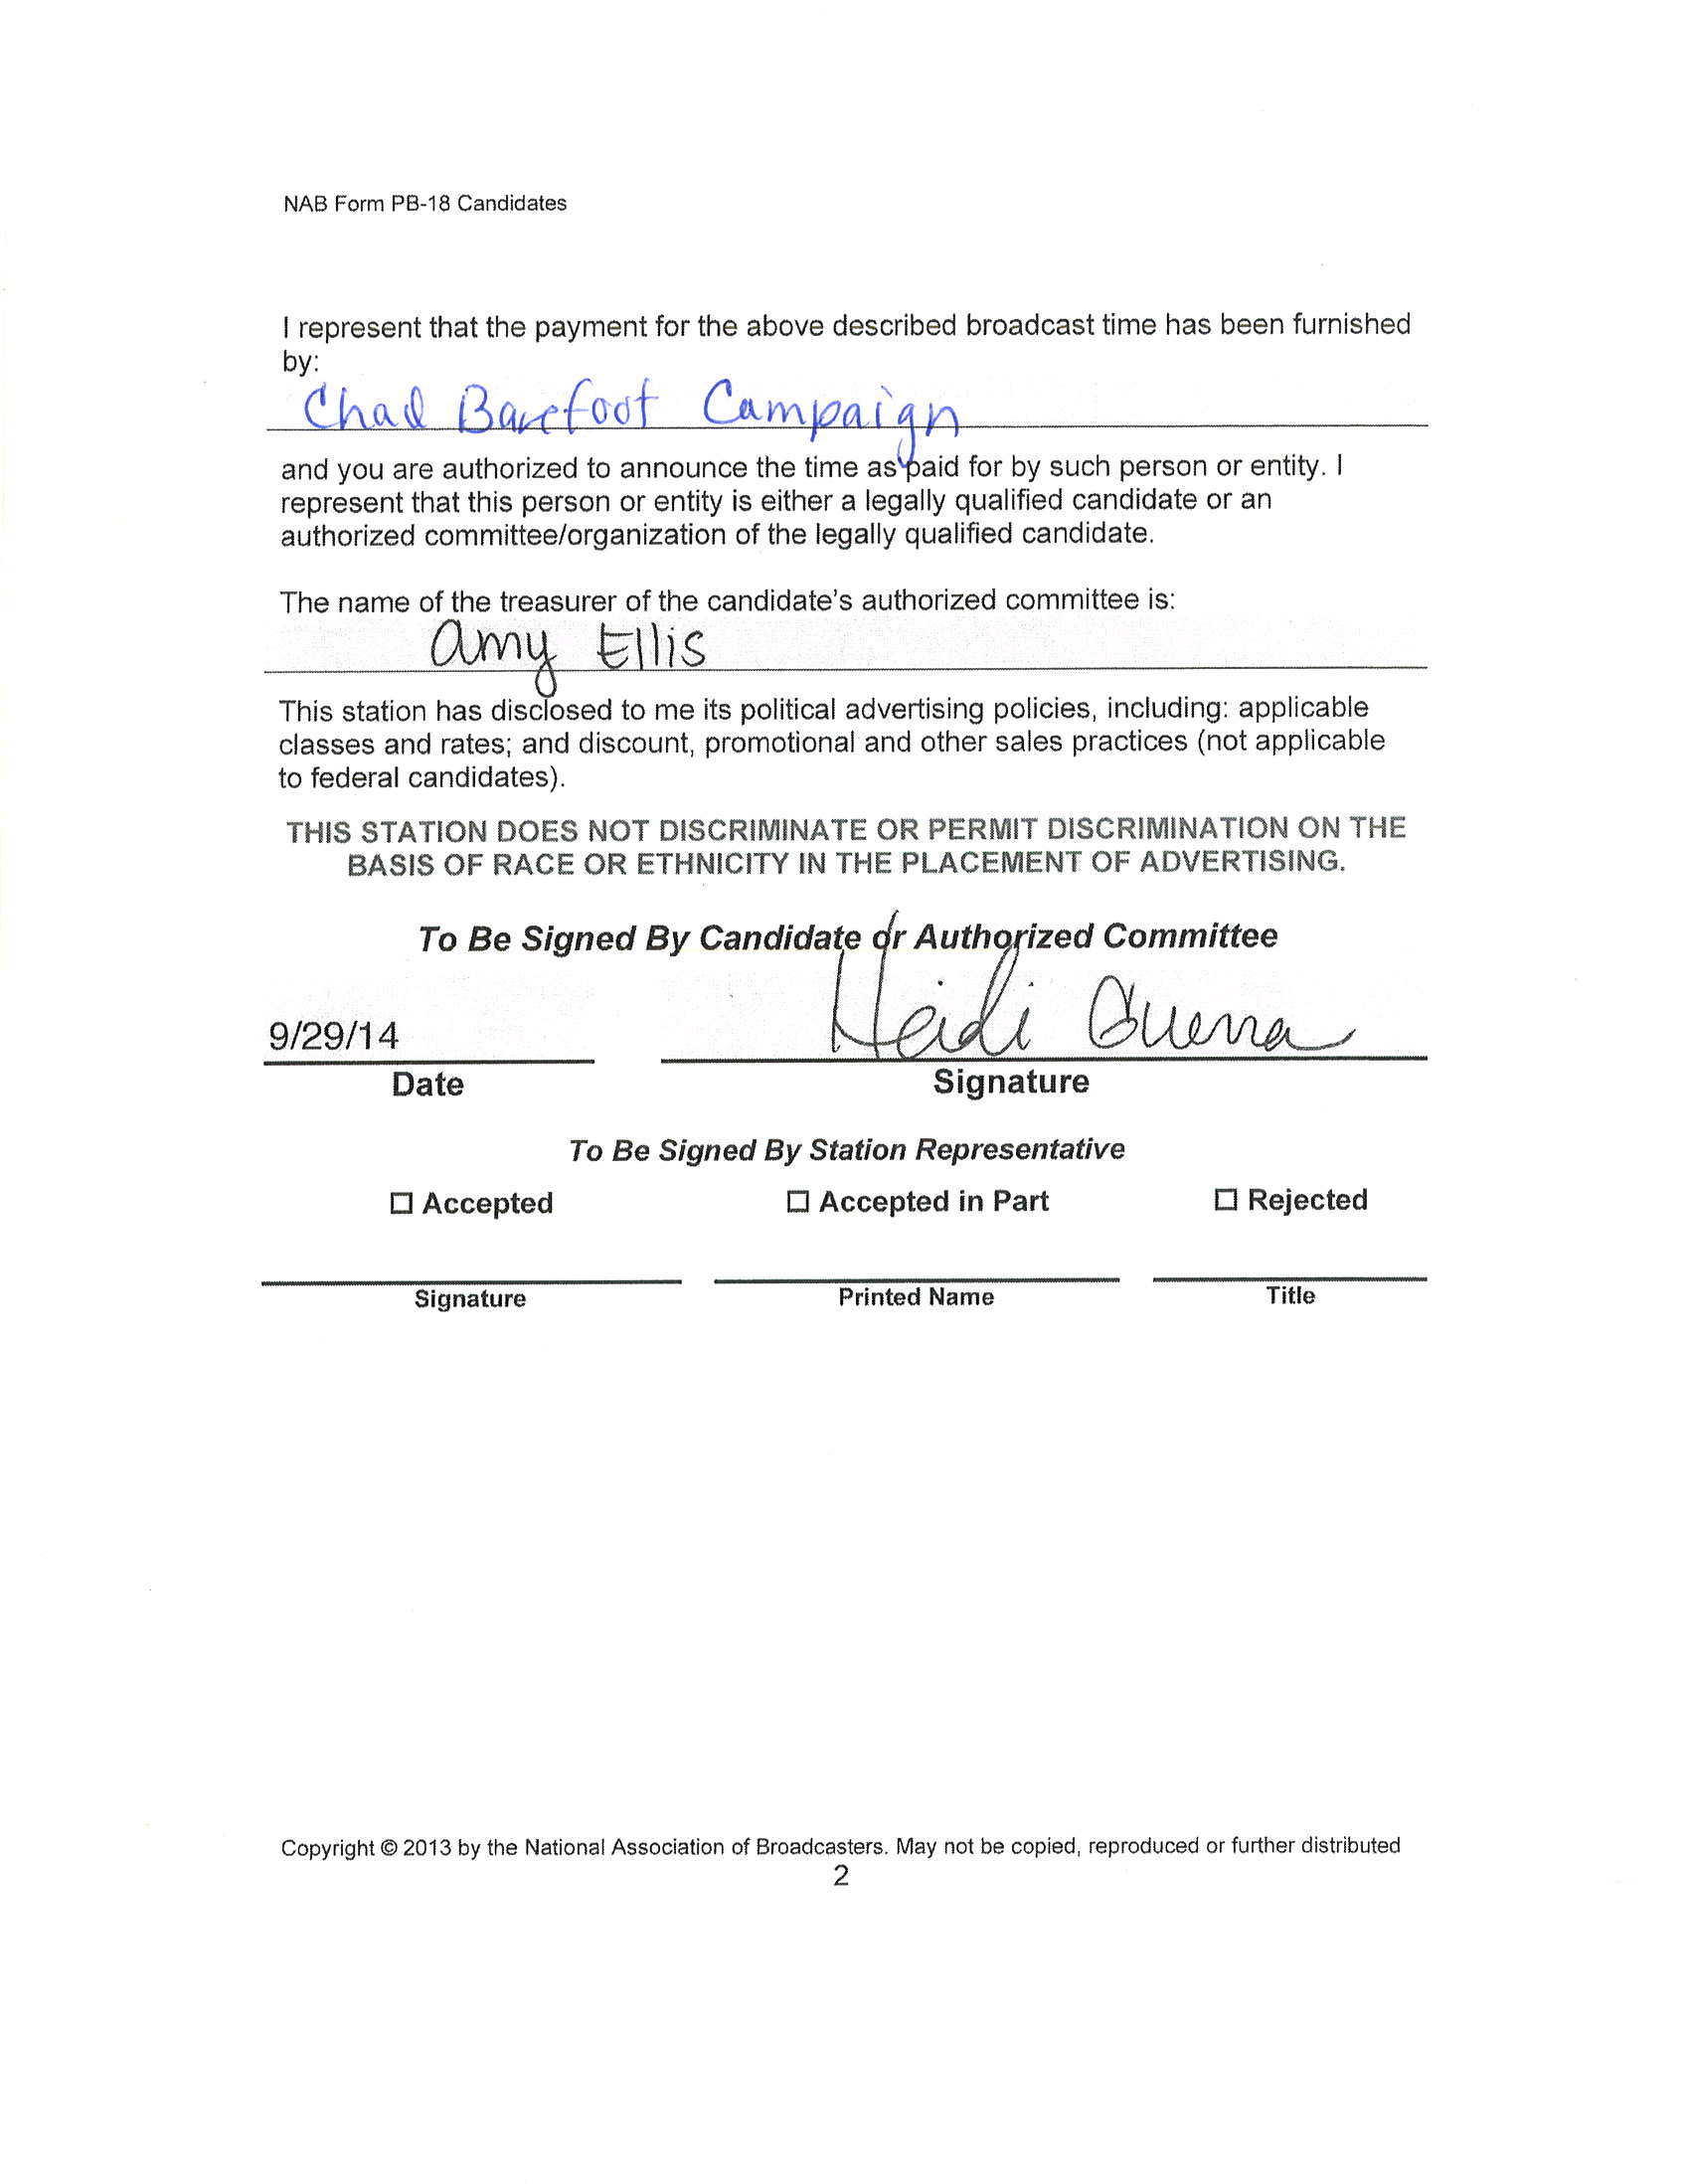 NAB Form PB-18 Candidates
I represent that the payment for the above described broadcast time has been furnished
by:
Chad Barefoot Campaign
and you are authorized to announce the time as paid for by such person or entity. I
represent that this person or entity is either a legally qualified candidate or an
authorized committee/organization of the legally qualified candidate.
The name of the treasurer of the candidate's authorized committee is:
Amy Ellis
This station has disclosed to me its political advertising policies, including: applicable
classes and rates; and discount, promotional and other sales practices (not applicable
to federal candidates).
THIS STATION DOES NOT DISCRIMINATE OR PERMIT DISCRIMINATION ON THE
BASIS OF RACE OR ETHNICITY IN THE PLACEMENT OF ADVERTISING.
To Be Signed By Candidate or Authorized Committee
9/29/14 Heidi Guerra
Date Signature
To Be Signed By Station Representative
☐ Accepted ☐ Accepted in Part ☐ Rejected
Signature Printed Name Title
Copyright © 2013 by the National Association of Broadcasters. May not be copied, reproduced or further distributed
2